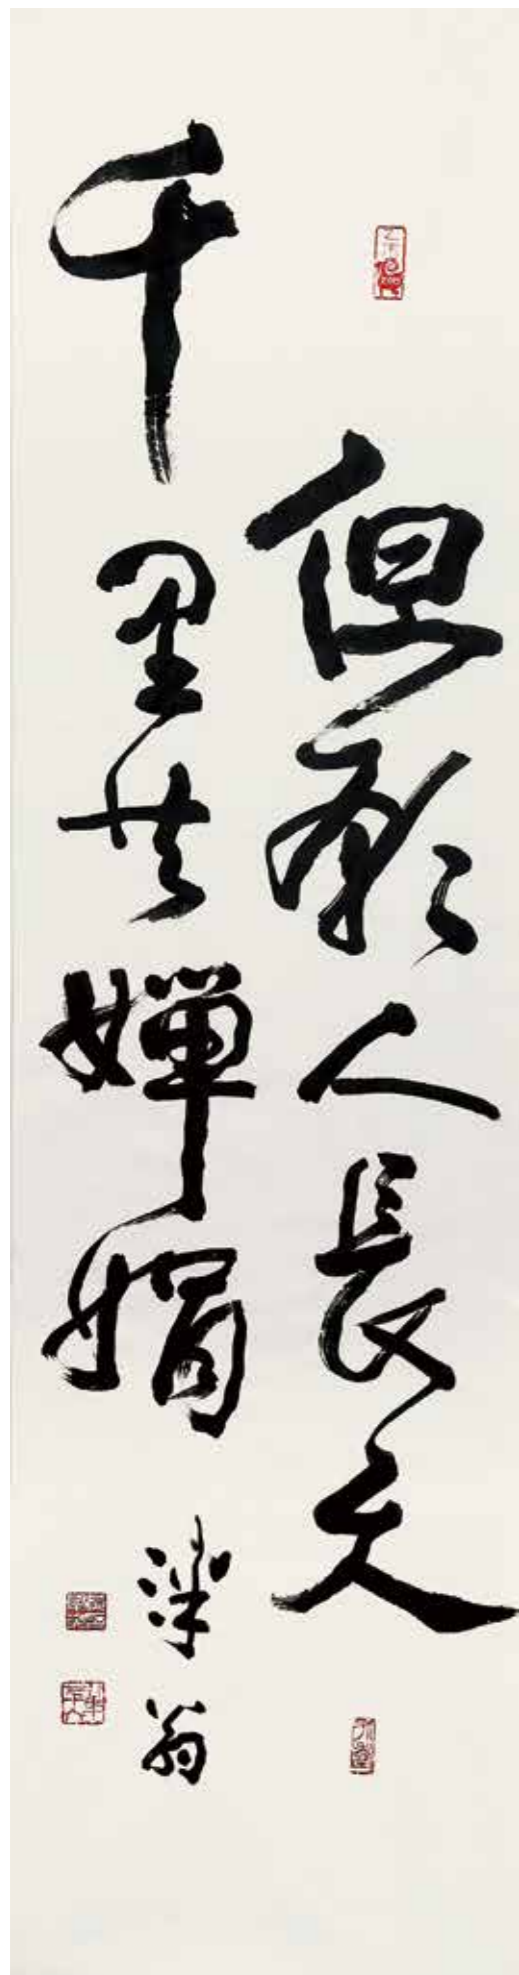 但願人長久
千里共嬋娟
梁翁